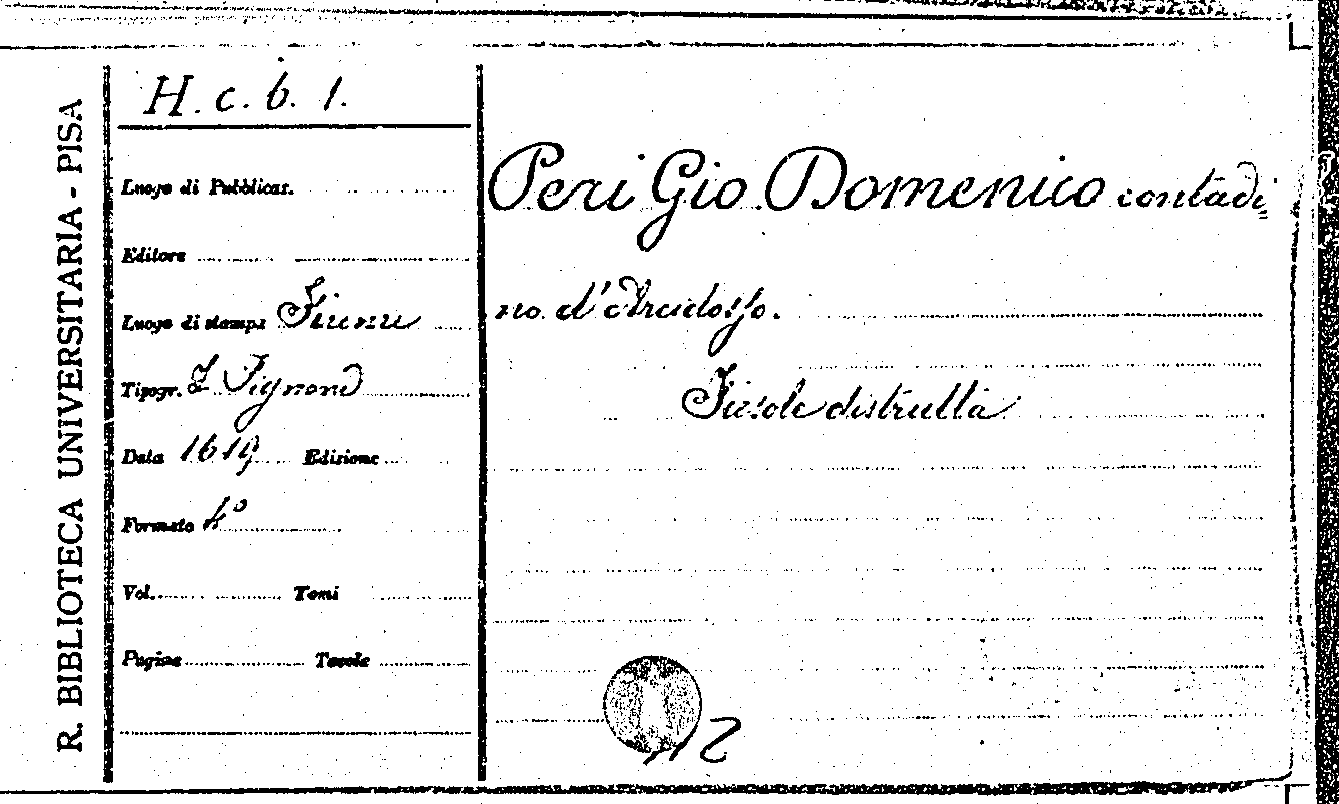 R. BIBLIOTECA UNIVERSITARIA - PISA
H. c. b. 1.
Luogo di Pubblicaz.
Editore
Luogo di stampa Firenze
Tipogr. Z. Pignoni
Data 1619 Edizione
Formato 4°
Vol. Tomi
Pagine Tavole
Peri Gio Domenico contadi=
no d'Arcidosso.
Fiesole distrutta